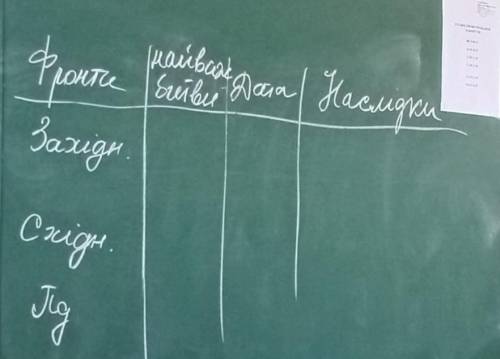 Фронти
найваж
битви
Дата
Наслідки
Західн.
Східн.
Пд